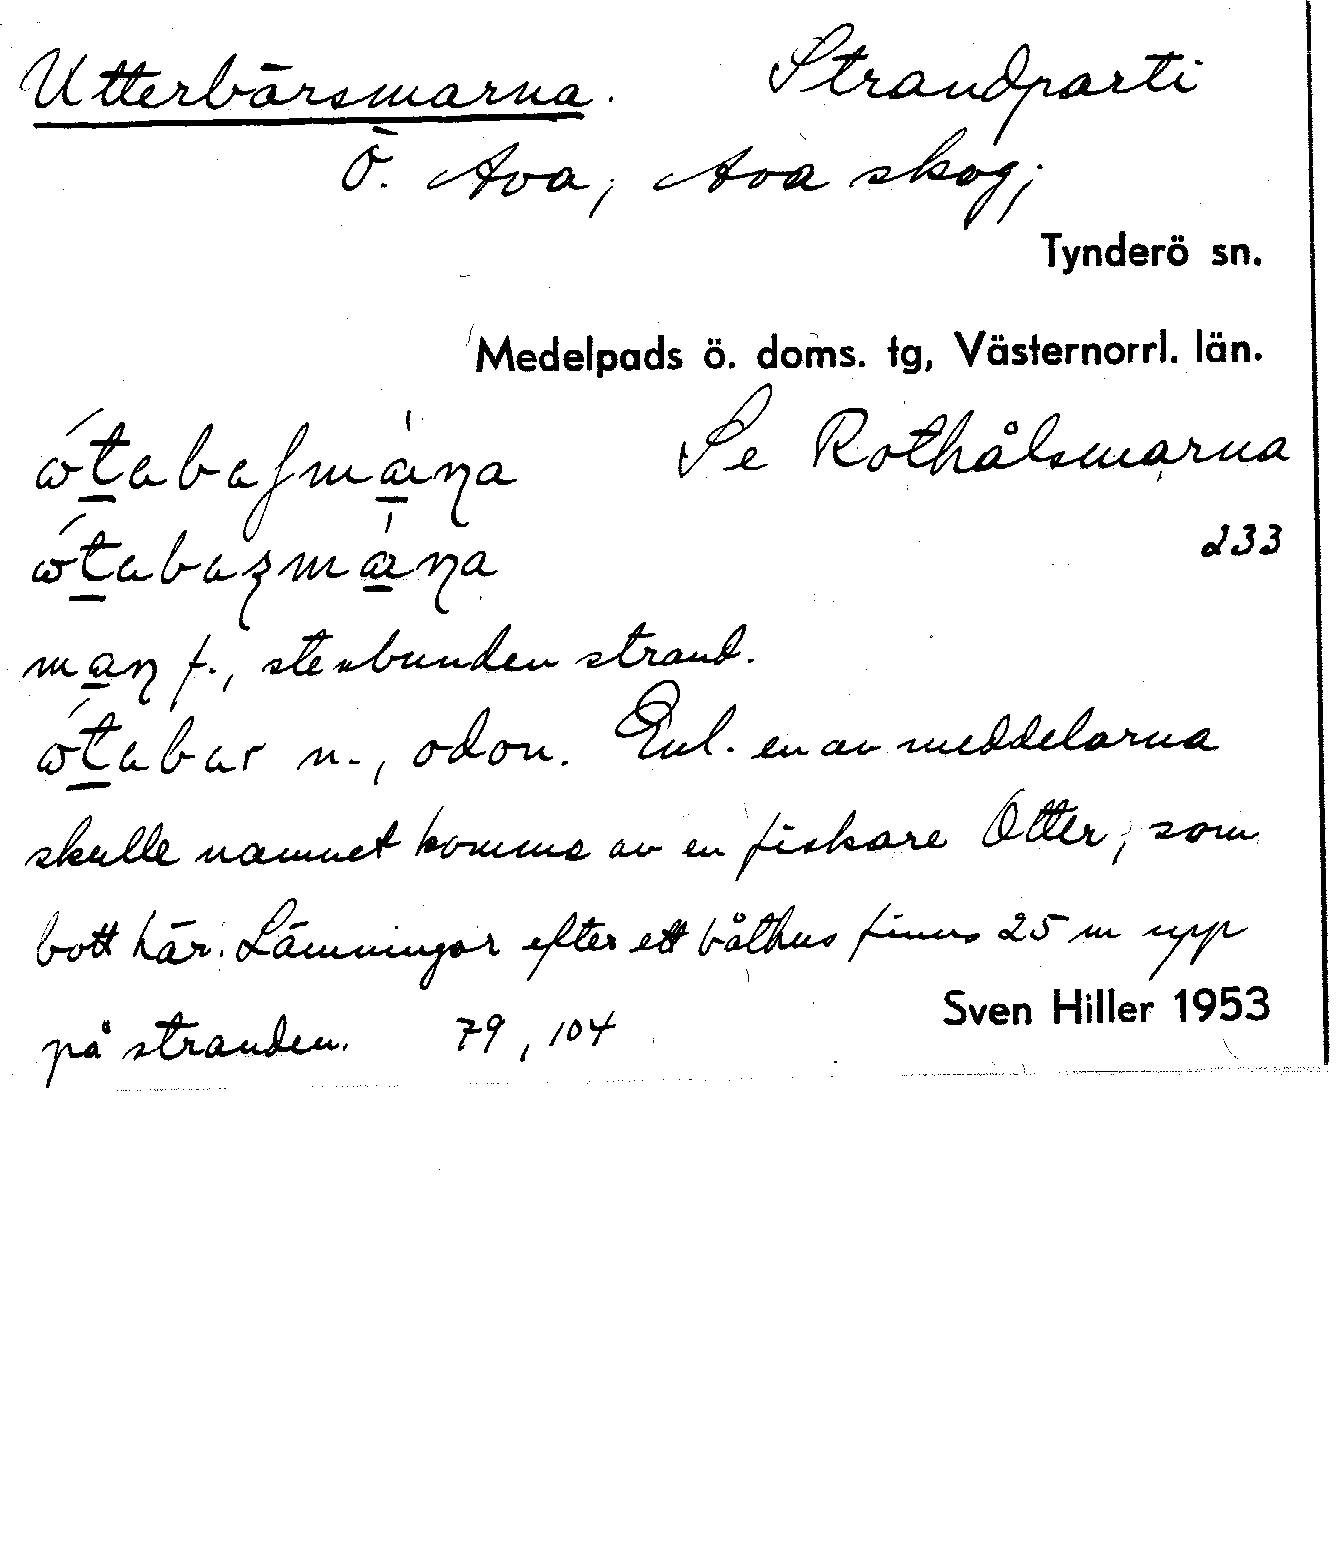 Utterbärsmarna. Strandparti
Ö. Ava, Ava skog;
Tynderö sn.
Medelpads ö. doms. tg, Västernorrl. län.
Se Rothålsmarna
d33
f., stenbunden strand.
n., odon. Enl. en av meddelarna
skulle namnet komma av en fiskare Otter, som
bott här. Lämningar efter ett båthus finns 25 m upp
på stranden. 79, 104
Sven Hiller 1953